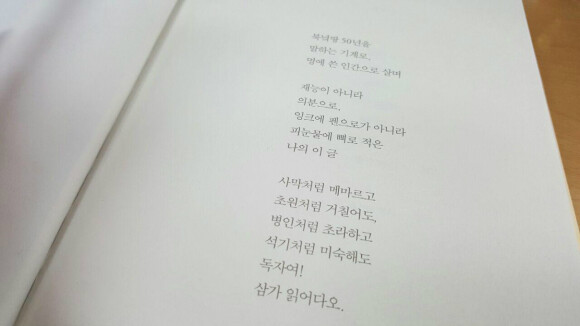 북녘땅 50년을
말하는 기계로,
멍에 쓴 인간으로 살며
재능이 아니라
의분으로,
잉크에 펜으로가 아니라
피눈물에 뼈로 적은
나의 이 글
사막처럼 메마르고
초원처럼 거칠어도,
병인처럼 초라하고
석기처럼 미숙해도
독자여!
삼가 읽어다오.